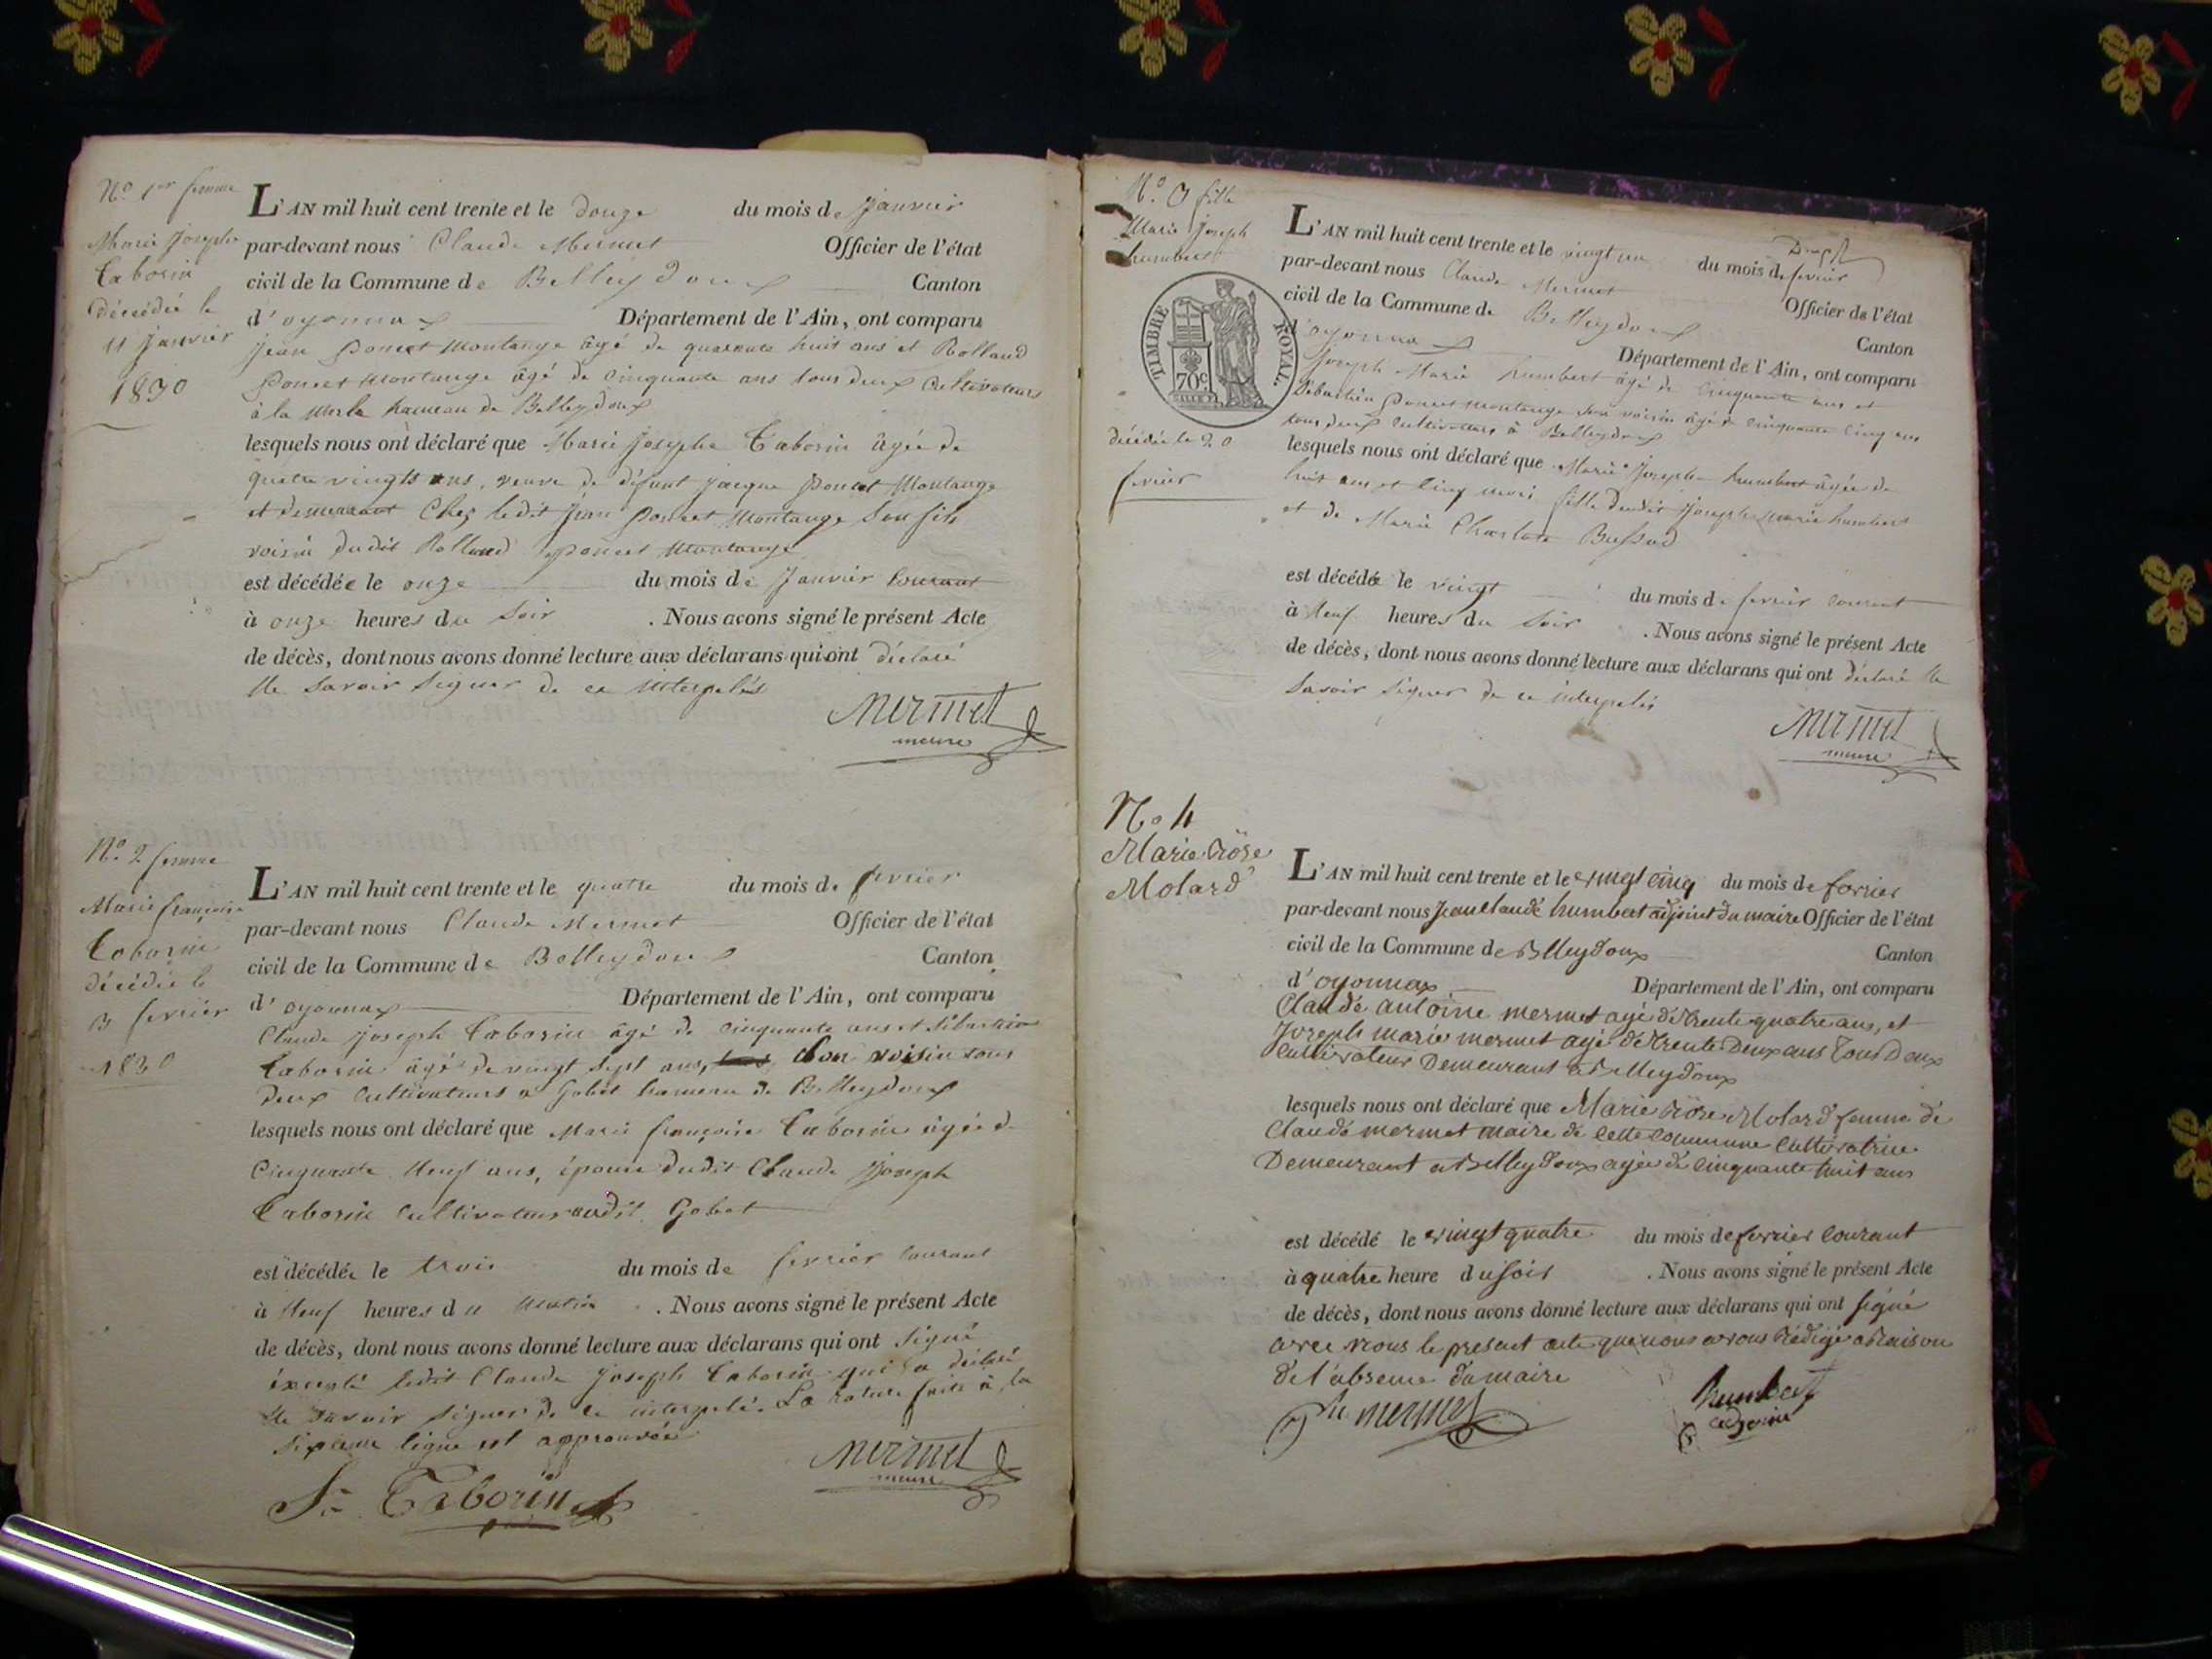 N.o 1er femme
Marie Josephe
Taborin
décédée le
11 Janvier
1830
L'AN mil huit cent trente et le douze du mois de Janvier
par-devant nous Claude Mermet Officier de l'état
civil de la Commune de Belleydoux Canton
d'oyonnax Département de l'Ain, ont comparu
Jean Poncet Montange âgé de quarante huit ans et Rolland
Poncet Montange âgé de cinquante ans tous deux Cultivateurs
à la hameau de Belleydoux
lesquels nous ont déclaré que Marie Josephe Taborin âgée de
quatre vingts ans, veuve de défunt Jacque Poncet Montange
et demeurant Chez ledit Jean Poncet Montange Son fils
voisin dudit Rolland Poncet Montange
est décédée le onze du mois de Janvier Courant
à onze heures du Soir . Nous avons signé le présent Acte
de décès, dont nous avons donné lecture aux déclarans qui ont déclaré
Ne Savoir Signer de ce interpelés
Mermet
maire
N.o 2 femme
Marie françoise
Taborin
décédée le
3 fevrier
1830
L'AN mil huit cent trente et le quatre du mois de fevrier
par-devant nous Claude Mermet Officier de l'état
civil de la Commune de Belleydoux Canton
d'oyonnax Département de l'Ain, ont comparu
Claude Joseph Taborin âgé de cinquante ans et Sébastien
Taborin âgé de vingt Sept ans, Son voisin tous
deux Cultivateurs a Gobet hameau de Belleydoux
lesquels nous ont déclaré que Marie françoise Taborin âgée de
Cinquante Neuf ans, épouse dudit Claude Joseph
Taborin Cultivateur audit Gobet
est décédée le trois du mois de fevrier Courant
à Neuf heures du Matin . Nous avons signé le présent Acte
de décès, dont nous avons donné lecture aux déclarans qui ont Signé
éxcepté ledit Claude Joseph Taborin qui a déclaré
Ne Savoir Signer de ce interpelé. La rature faite à la
Sixieme ligne est approuvée
Mermet
maire
Sn Taborin
N.o 3 fille
Marie Joseph
humbert
TIMBRE ROYAL.
70c
décédée le 20
fevrier
L'AN mil huit cent trente et le vingt un du mois de fevrier
par-devant nous Claude Mermet Officier de l'état
civil de la Commune de Belleydoux Canton
d'oyonnax Département de l'Ain, ont comparu
Joseph Marie humbert âgé de Cinquante ans et
Sébastien Poncet Montange Son voisin âgé de cinquante Cinq ans
tous deux Cultivateurs à Belleydoux
lesquels nous ont déclaré que Marie Josephe humbert âgée de
huit ans et Cinq mois fille dudit Joseph Marie humbert
et de Marie Charlote Bussod
est décédée le vingt du mois de fevrier Courant
à Neuf heures du Soir . Nous avons signé le présent Acte
de décès, dont nous avons donné lecture aux déclarans qui ont déclaré Ne
Savoir Signer de ce interpelés
Mermet
maire
No 4
Marie Röse
Molard
L'AN mil huit cent trente et le vingt cinq du mois de fevrier
par-devant nous Jean Claude humbert adjoint du maire Officier de l'état
civil de la Commune de Belleydoux Canton
d'oyonnax Département de l'Ain, ont comparu
Claude antoine mermet agé de trente quatre ans, et
Joseph marie mermet agé de trente Deux ans Tous Deux
Cultivateur Demeurant a Belleydoux
lesquels nous ont déclaré que Marie Röse Molard femme de
Claude mermet maire de cette commune Cultivatrice
Demeurant a Belleydoux agée de cinquante huit ans
est décédé le vingt quatre du mois de fevrier Courant
à quatre heure du soir . Nous avons signé le présent Acte
de décès, dont nous avons donné lecture aux déclarans qui ont signé
avec nous le present acte que nous avons Rédigé a Raison
de l'absence du maire
Jh mermet
humbert
adjoint